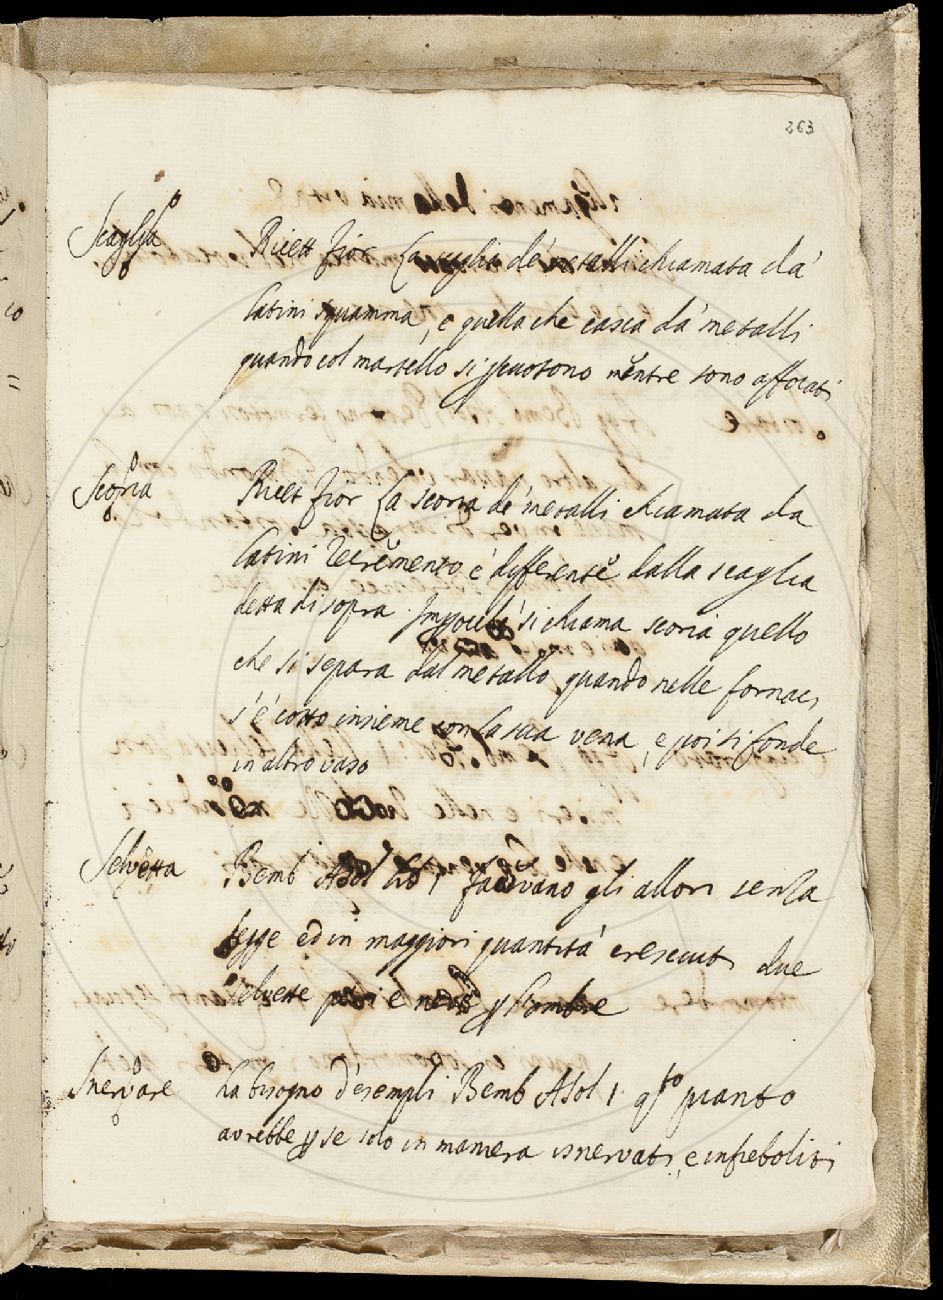 263
Scaglia Ricett fior La scaglia de' metalli chiamata da'
latini squamma, e quella che casca da' metalli
quando col martello si percuotono mentre sono affocati
Scoria Ricet fior La scoria de' metalli chiamata da
latini recremento è differente dalla scaglia
detta di sopra. Impocche' si chiama scoria quello
che si separa dal metallo quando nelle fornaci
s'è cotto insieme con la sua vena, e poi si fonde
in altro vaso
Selvetta Bemb Asol lib 1 facevano gli allori senza
legge ed in maggiori quantità cresciuti due
selvette pari e nere
Snervare ha bisogno d'esempli Bemb Asol 1 qto quanto
avrebbe p se solo in maniera isnervati, e infieboliti